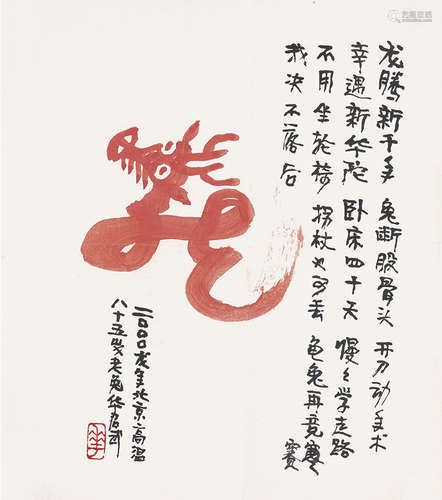 龙腾新千年 兔断股骨头 开刀动手术
幸遇新华陀 卧床四十天 慢々学走路
不用坐轮椅 拐杖也可丢 龟兔再竞赛
赛
我决不落后
二〇〇〇龙年北京高温
八十五岁老兔华君武
华